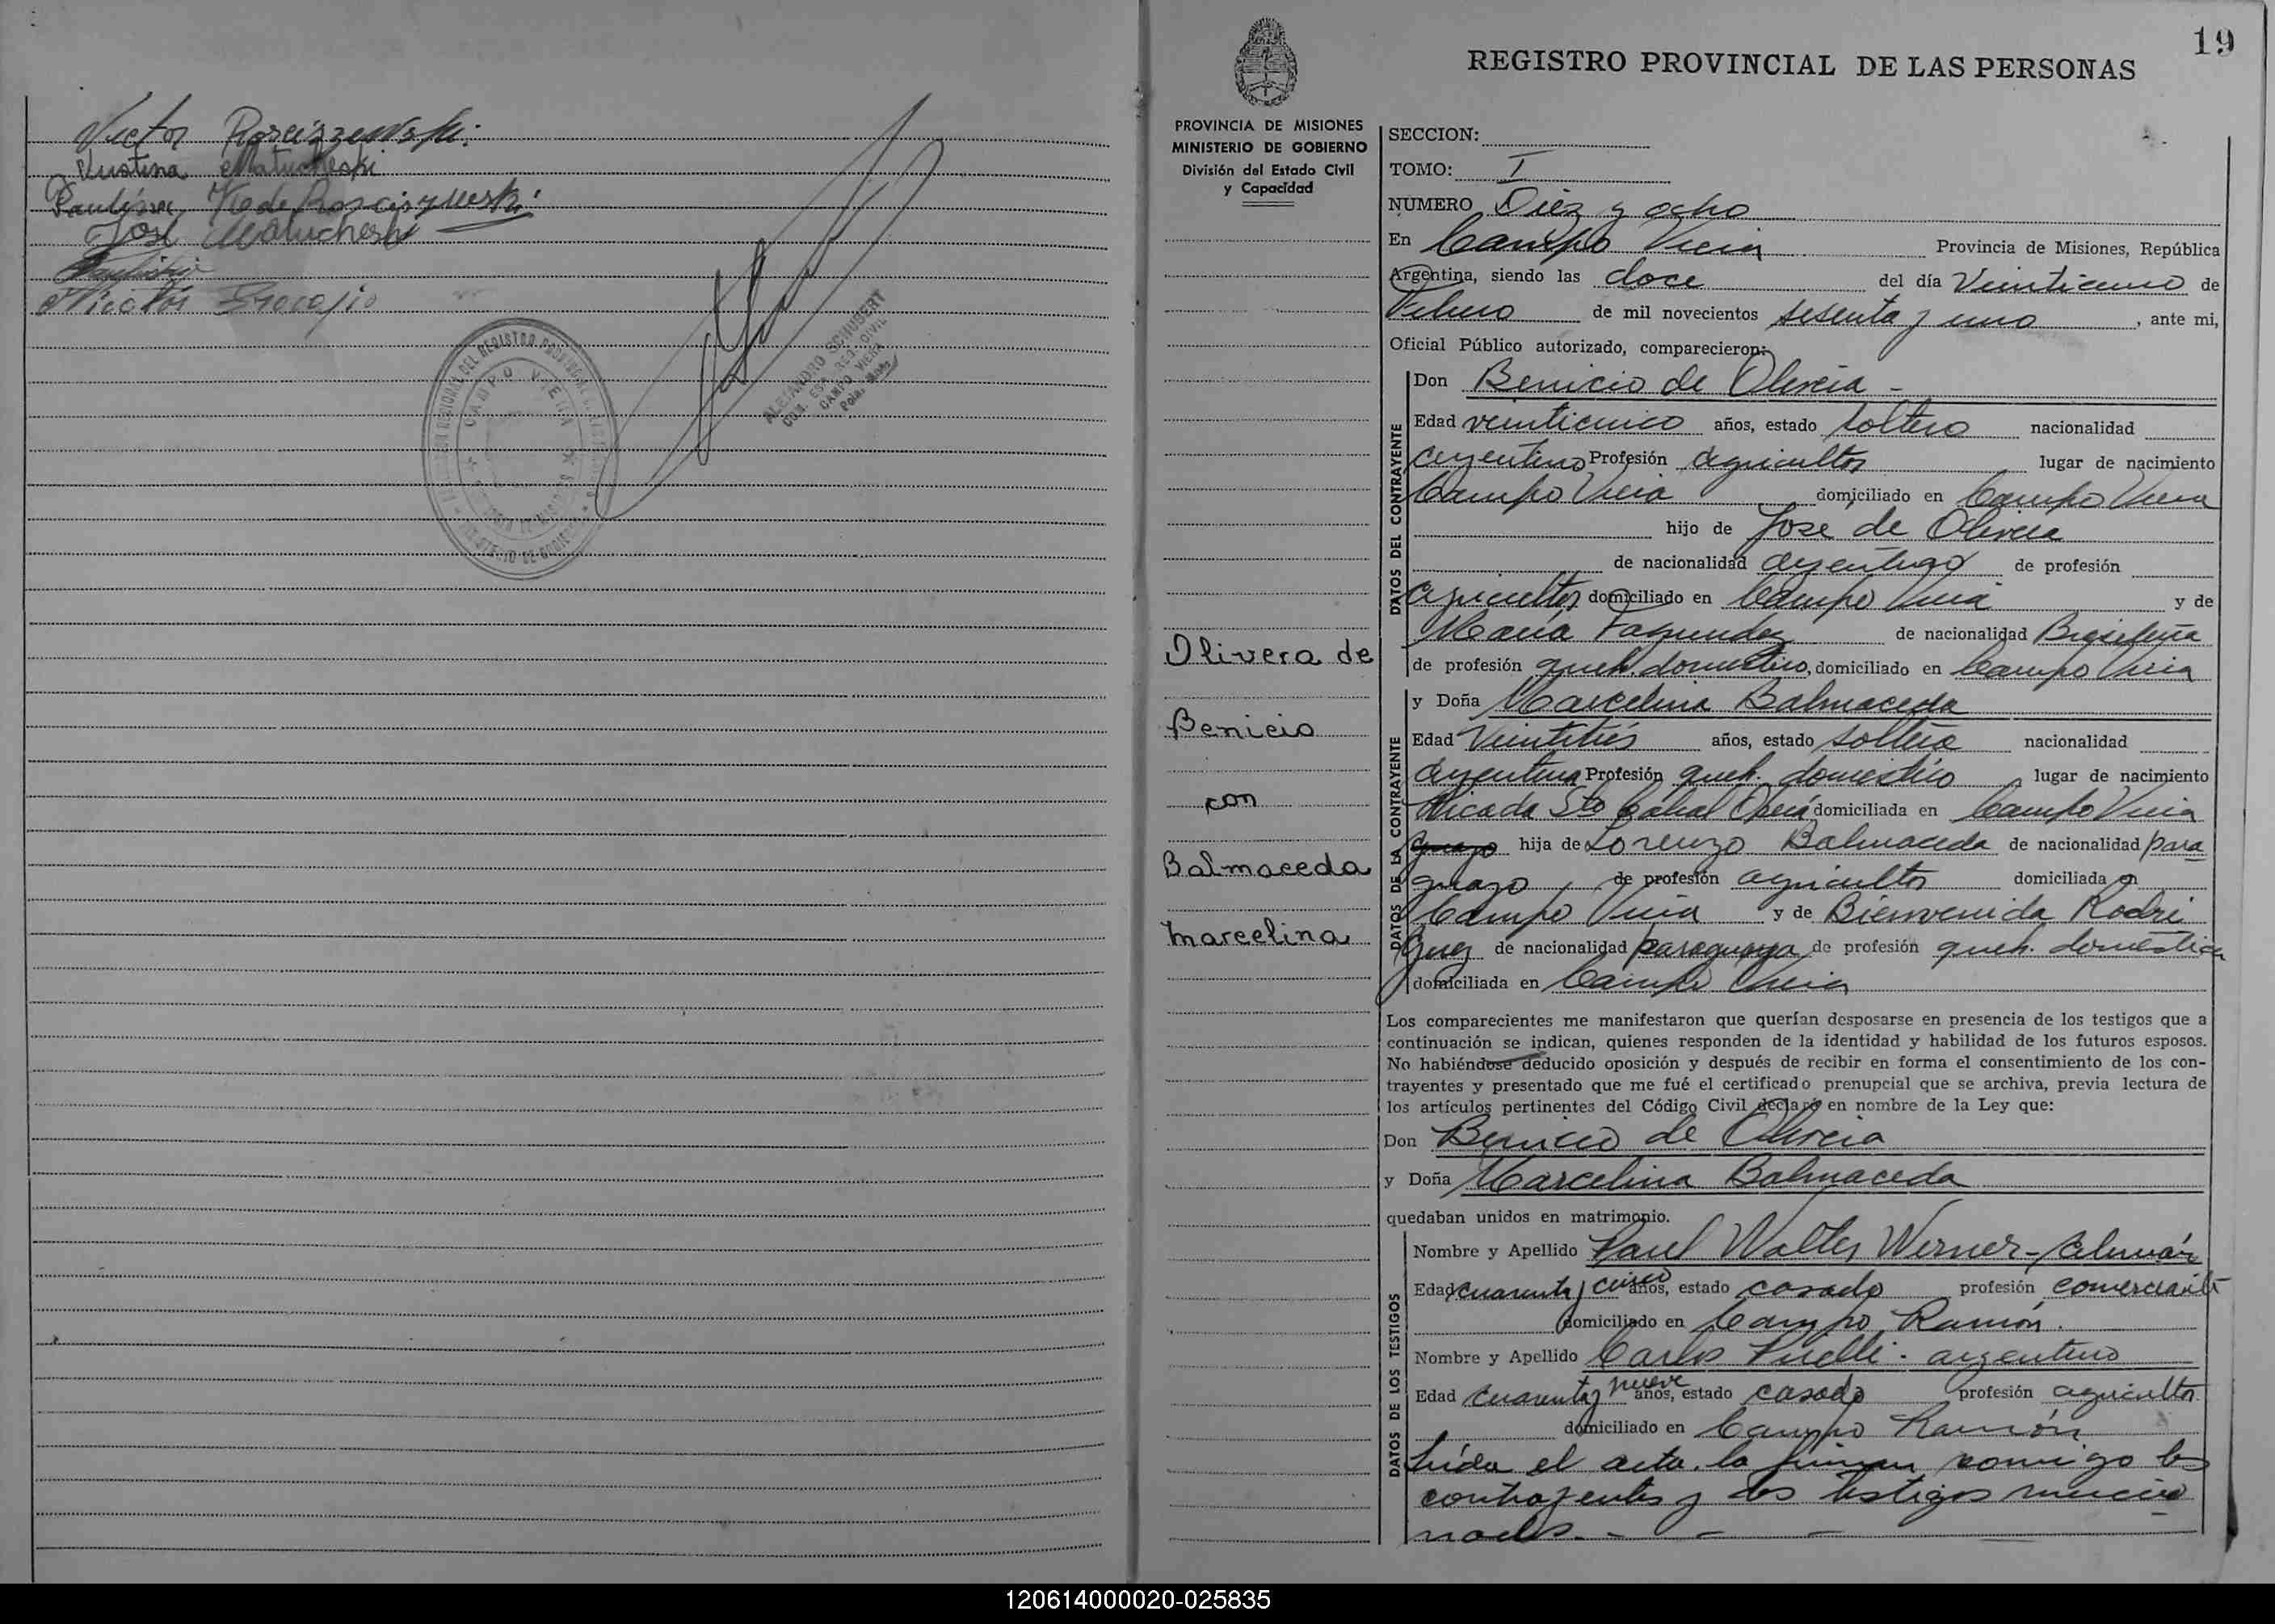 Victor Rosciszewski.
Kustina Matucheski
Paulina K de Rosciszewski.
José Matucheski
Nicolás Procopio
MINISTERIO DE GOBIERNO
CAMPO VIERA
ALEJANDRO SCHUBERT
REG. CIVIL
CAMPO VIERA
19
REGISTRO PROVINCIAL DE LAS PERSONAS
PROVINCIA DE MISIONES
MINISTERIO DE GOBIERNO
División del Estado Civil
y Capacidad
Olivera de
Benicio
con
Balmaceda
Marcelina
SECCION:
TOMO: I
NUMERO Diez y ocho
En Campo Viera Provincia de Misiones, República
Argentina, siendo las doce del día Veinticinco de
Febrero de mil novecientos sesenta y uno, ante mi,
Oficial Público autorizado, comparecieron:
DATOS DEL CONTRAYENTE
Don Benicio de Olivera -
Edad veinticinco años, estado soltero nacionalidad
argentino Profesión agricultor lugar de nacimiento
Campo Viera domiciliado en Campo Viera
hijo de José de Olivera
de nacionalidad argentino de profesión
agricultor domiciliado en Campo Viera y de
María Fagundez de nacionalidad Brasileña
de profesión queh. domestico, domiciliado en Campo Viera
DATOS DE LA CONTRAYENTE
y Doña Marcelina Balmaceda
Edad Veintitrés años, estado soltera nacionalidad
argentina Profesión queh. domestico lugar de nacimiento
Picada Sto Oberá domiciliada en Campo Viera
guayo hija de Lorenzo Balmaceda de nacionalidad para
guayo, de profesión agricultor domiciliada en
Campo Viera y de Bienvenida Rodri
guez de nacionalidad paraguaya de profesión queh. domestica
domiciliada en Campo Viera
Los comparecientes me manifestaron que querían desposarse en presencia de los testigos que a
continuación se indican, quienes responden de la identidad y habilidad de los futuros esposos.
No habiéndose deducido oposición y después de recibir en forma el consentimiento de los con-
trayentes y presentado que me fué el certificado prenupcial que se archiva, previa lectura de
los artículos pertinentes del Código Civil declaró en nombre de la Ley que:
Don Benicio de Olivera
y Doña Marcelina Balmaceda
quedaban unidos en matrimonio.
DATOS DE LOS TESTIGOS
Nombre y Apellido Paul Walter Werner - alemán
Edad cuarenta y cinco años, estado casado profesión comerciante
domiciliado en Campo Ramón.
Nombre y Apellido Carlos - argentino
Edad cuarenta y nueve años, estado casado profesión agricultor
domiciliado en Campo Ramón
Leída el acta, la firman conmigo los
contrayentes y los testigos mencio
nados. - - - -
120614000020-025835